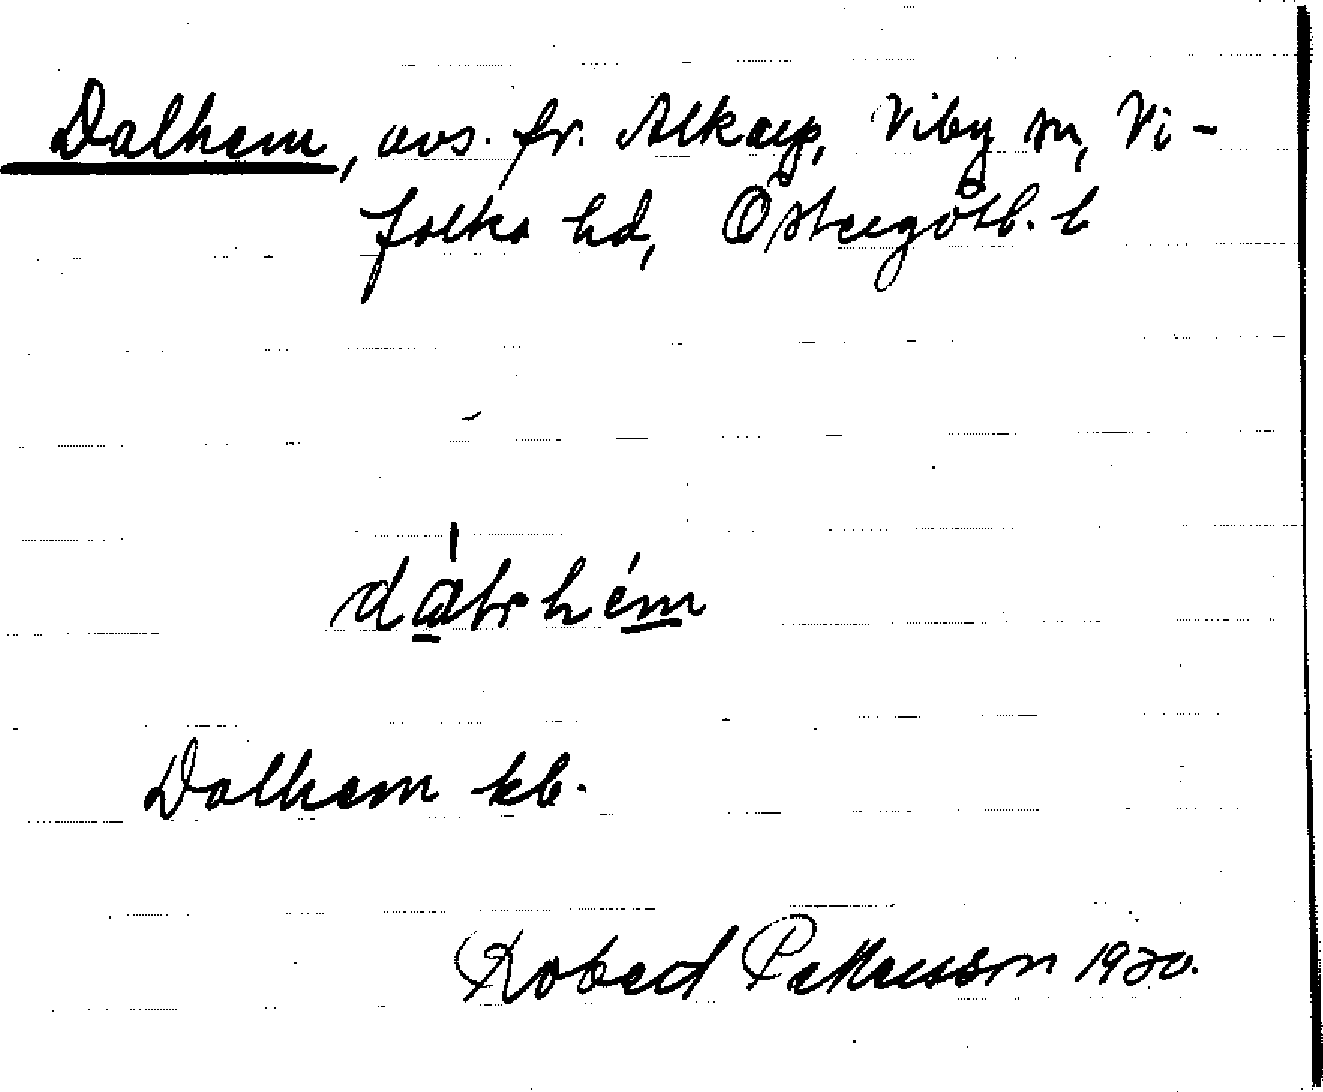 Dalhem, avs. fr. Alkarp, Viby sn, Vi-
folka hd, Östergötl. l
Dalhem kb.
Robert Pettersson 1930.